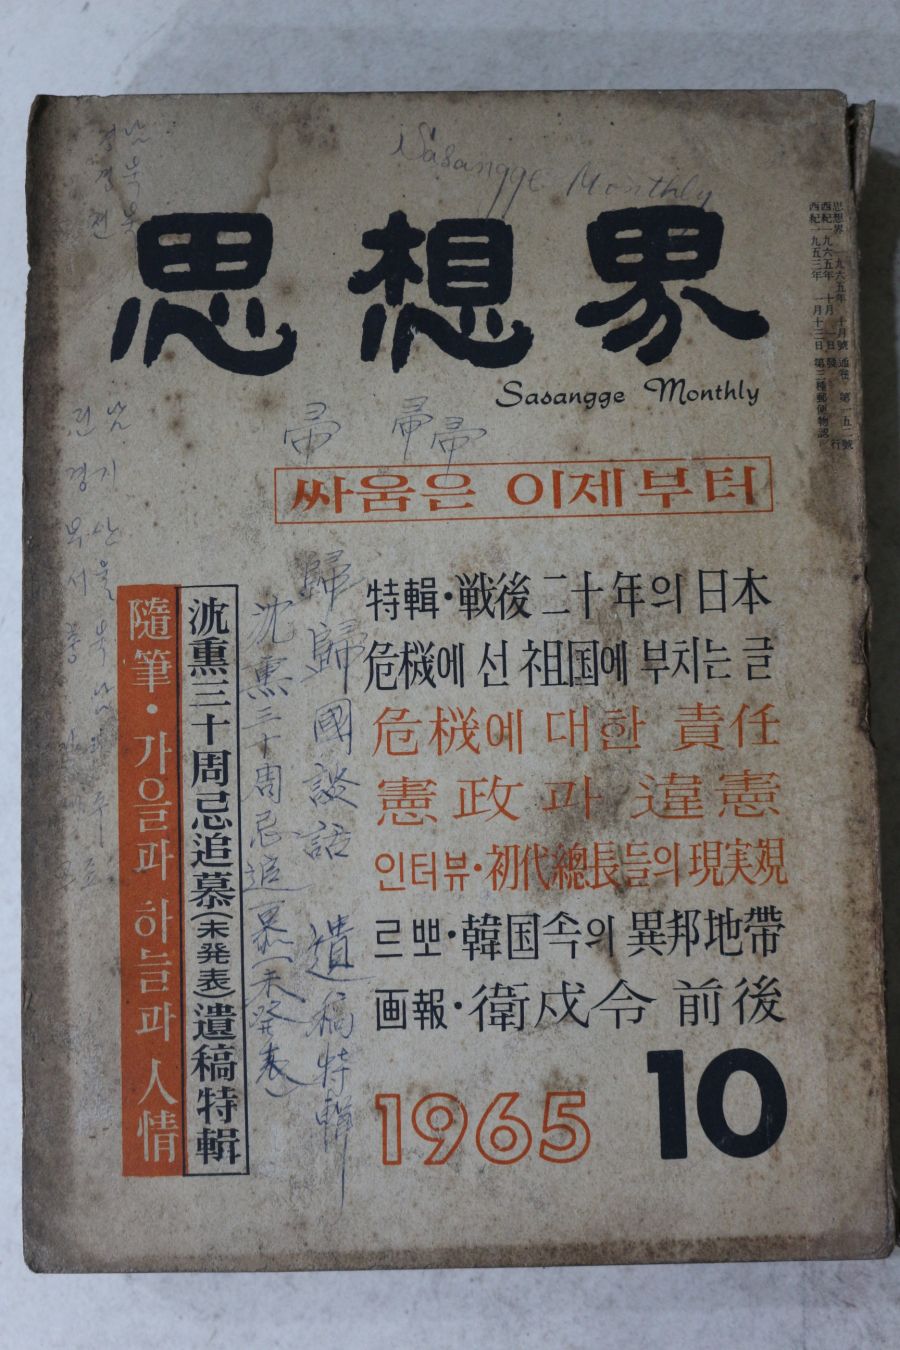 Sasangge Monthly
思想界
Sasangge Monthly
思想界 一九六五年 十月號 通卷 第一五二號
西紀一九六五年 十月 一日 發行
西紀一九五三年 一月十二日 第三種郵便物認
帚 帚帚
싸움은 이제부터
特輯·戦後 二十年의 日本
危機에 선 祖国에 부치는 글
危機에 대한 責任
憲政과 違憲
인터뷰·初代總長들의 現実観
르뽀·韓国속의 異邦地帶
画報·衛戍令 前後
歸歸國談話 遺稿特輯
沈熏三十周忌追慕(未發表)
沈熏三十周忌追慕(未発表)遺稿特輯
隨筆·가을과 하늘과 人情
전남
경기
서울
1965
10